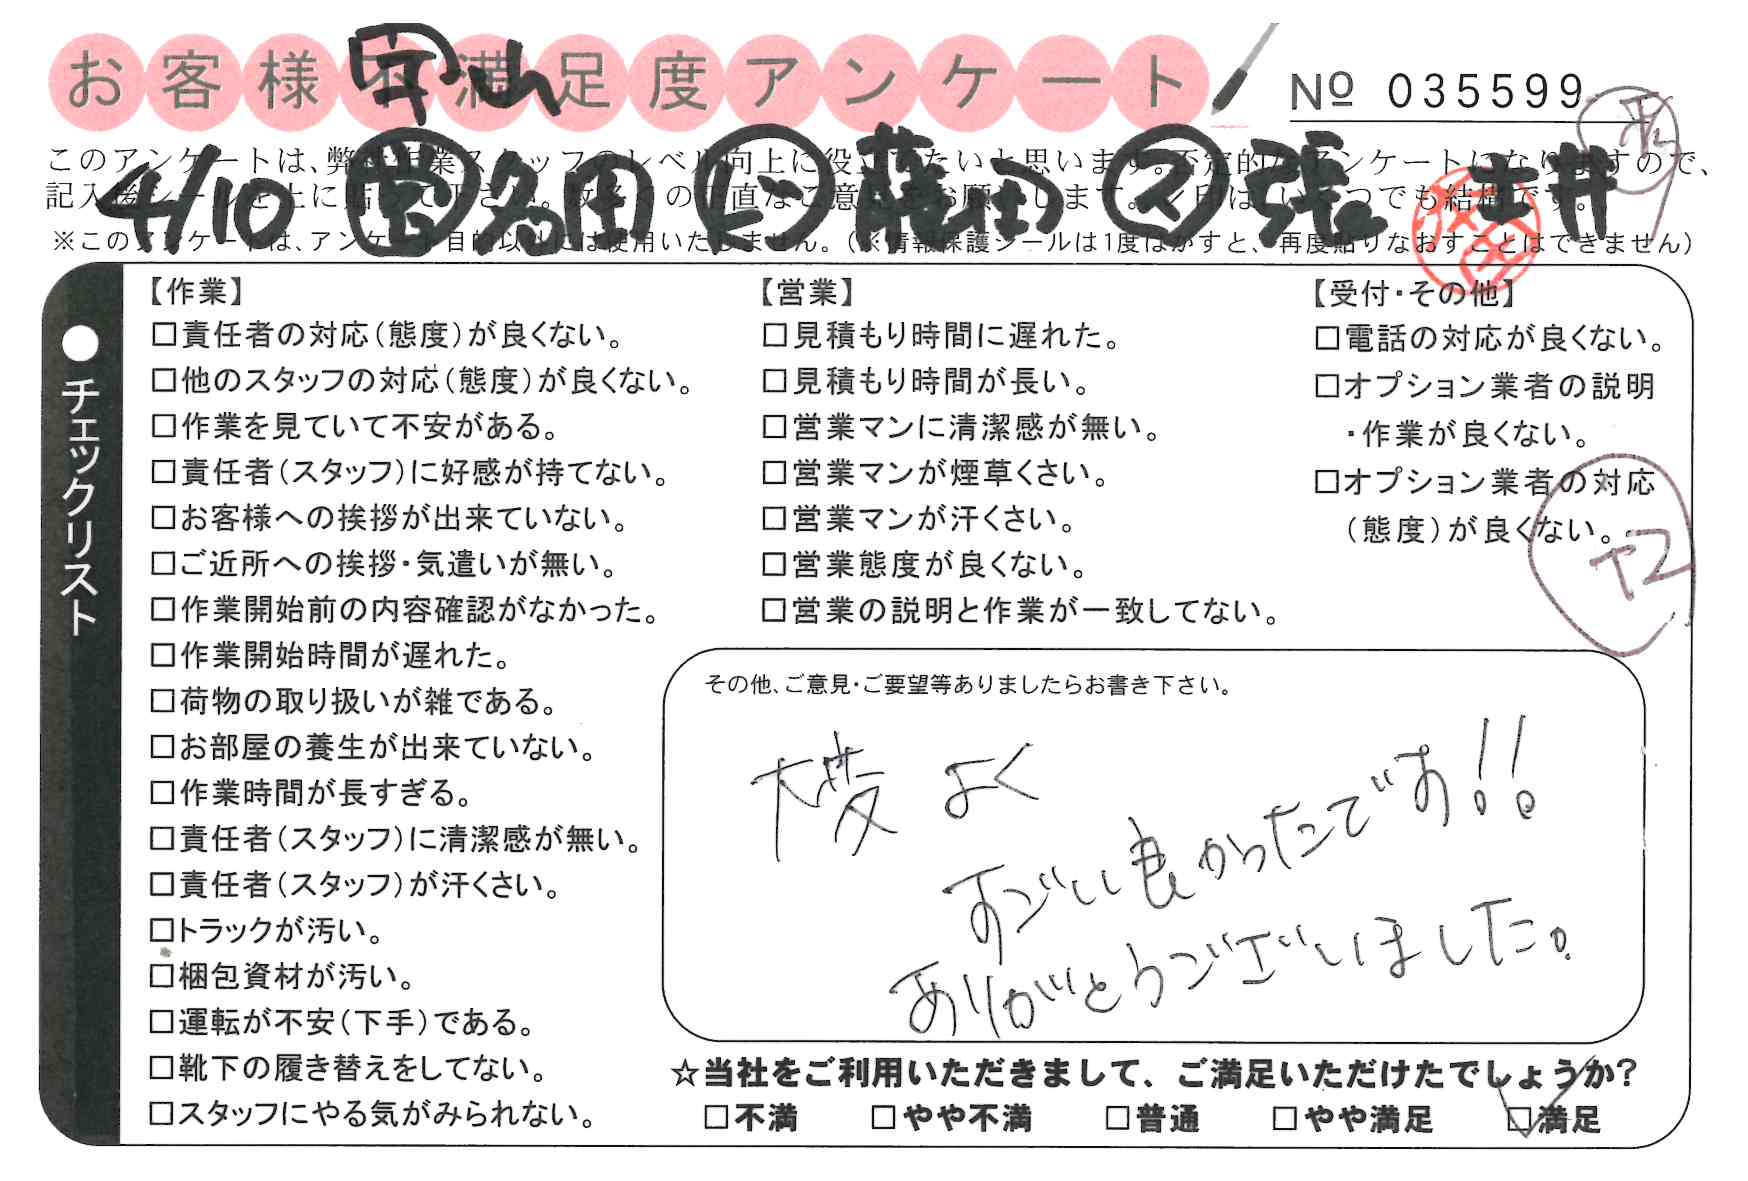 お客様不満足度アンケート
宇山
No 035599
このアンケートは、弊社作業スタッフのレベル向上に役立てたいと思います。否定的なアンケートになりますので、
記入後シールを上に貼って下さい。数多くの正直なご意見をお願いします。レ印は、いくつでも結構です。
4/10 営 名田 ト 藤田 ス 張 土井
※このアンケートは、アンケート目的以外には使用いたしません。(※情報保護シールは1度はがすと、再度貼りなおすことはできません)
●チェックリスト
【作業】
□責任者の対応(態度)が良くない。
□他のスタッフの対応(態度)が良くない。
□作業を見ていて不安がある。
□責任者(スタッフ)に好感が持てない。
□お客様への挨拶が出来ていない。
□ご近所への挨拶・気遣いが無い。
□作業開始前の内容確認がなかった。
□作業開始時間が遅れた。
□荷物の取り扱いが雑である。
□お部屋の養生が出来ていない。
□作業時間が長すぎる。
□責任者(スタッフ)に清潔感が無い。
□責任者(スタッフ)が汗くさい。
□トラックが汚い。
□梱包資材が汚い。
□運転が不安(下手)である。
□靴下の履き替えをしてない。
□スタッフにやる気がみられない。
【営業】
□見積もり時間に遅れた。
□見積もり時間が長い。
□営業マンに清潔感が無い。
□営業マンが煙草くさい。
□営業マンが汗くさい。
□営業態度が良くない。
□営業の説明と作業が一致してない。
【受付・その他】
□電話の対応が良くない。
□オプション業者の説明
・作業が良くない。
□オプション業者の対応
(態度)が良くない。
その他、ご意見・ご要望等ありましたらお書き下さい。
大変よく
すごいい良かったです!!
ありがとうございました。
☆当社をご利用いただきまして、ご満足いただけたでしょうか?
□不満 □やや不満 □普通 □やや満足 ☑満足